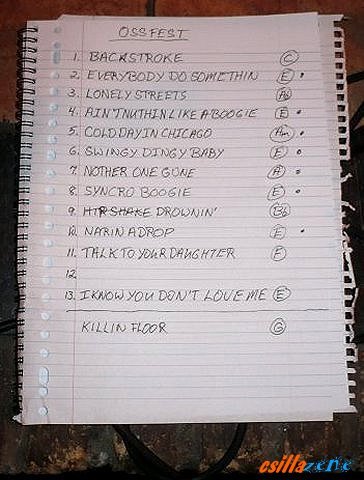 OSSFEST
1. BACKSTROKE C
2. EVERYBODY DO SOMETHIN E •
3. LONELY STREETS Ab
4. AIN'T NUTHIN LIKE A BOOGIE E •
5. COLD DAY IN CHICAGO Am •
6. SWINGY DINGY BABY E •
7. NOTHER ONE GONE A •
8. SYNCRO BOOGIE E •
9. DROWNIN' Bb
10. NARIN A DROP E •
11. TALK TO YOUR DAUGHTER F
12
13. I KNOW YOU DON'T LOVE ME E
KILLIN FLOOR G
csillazene